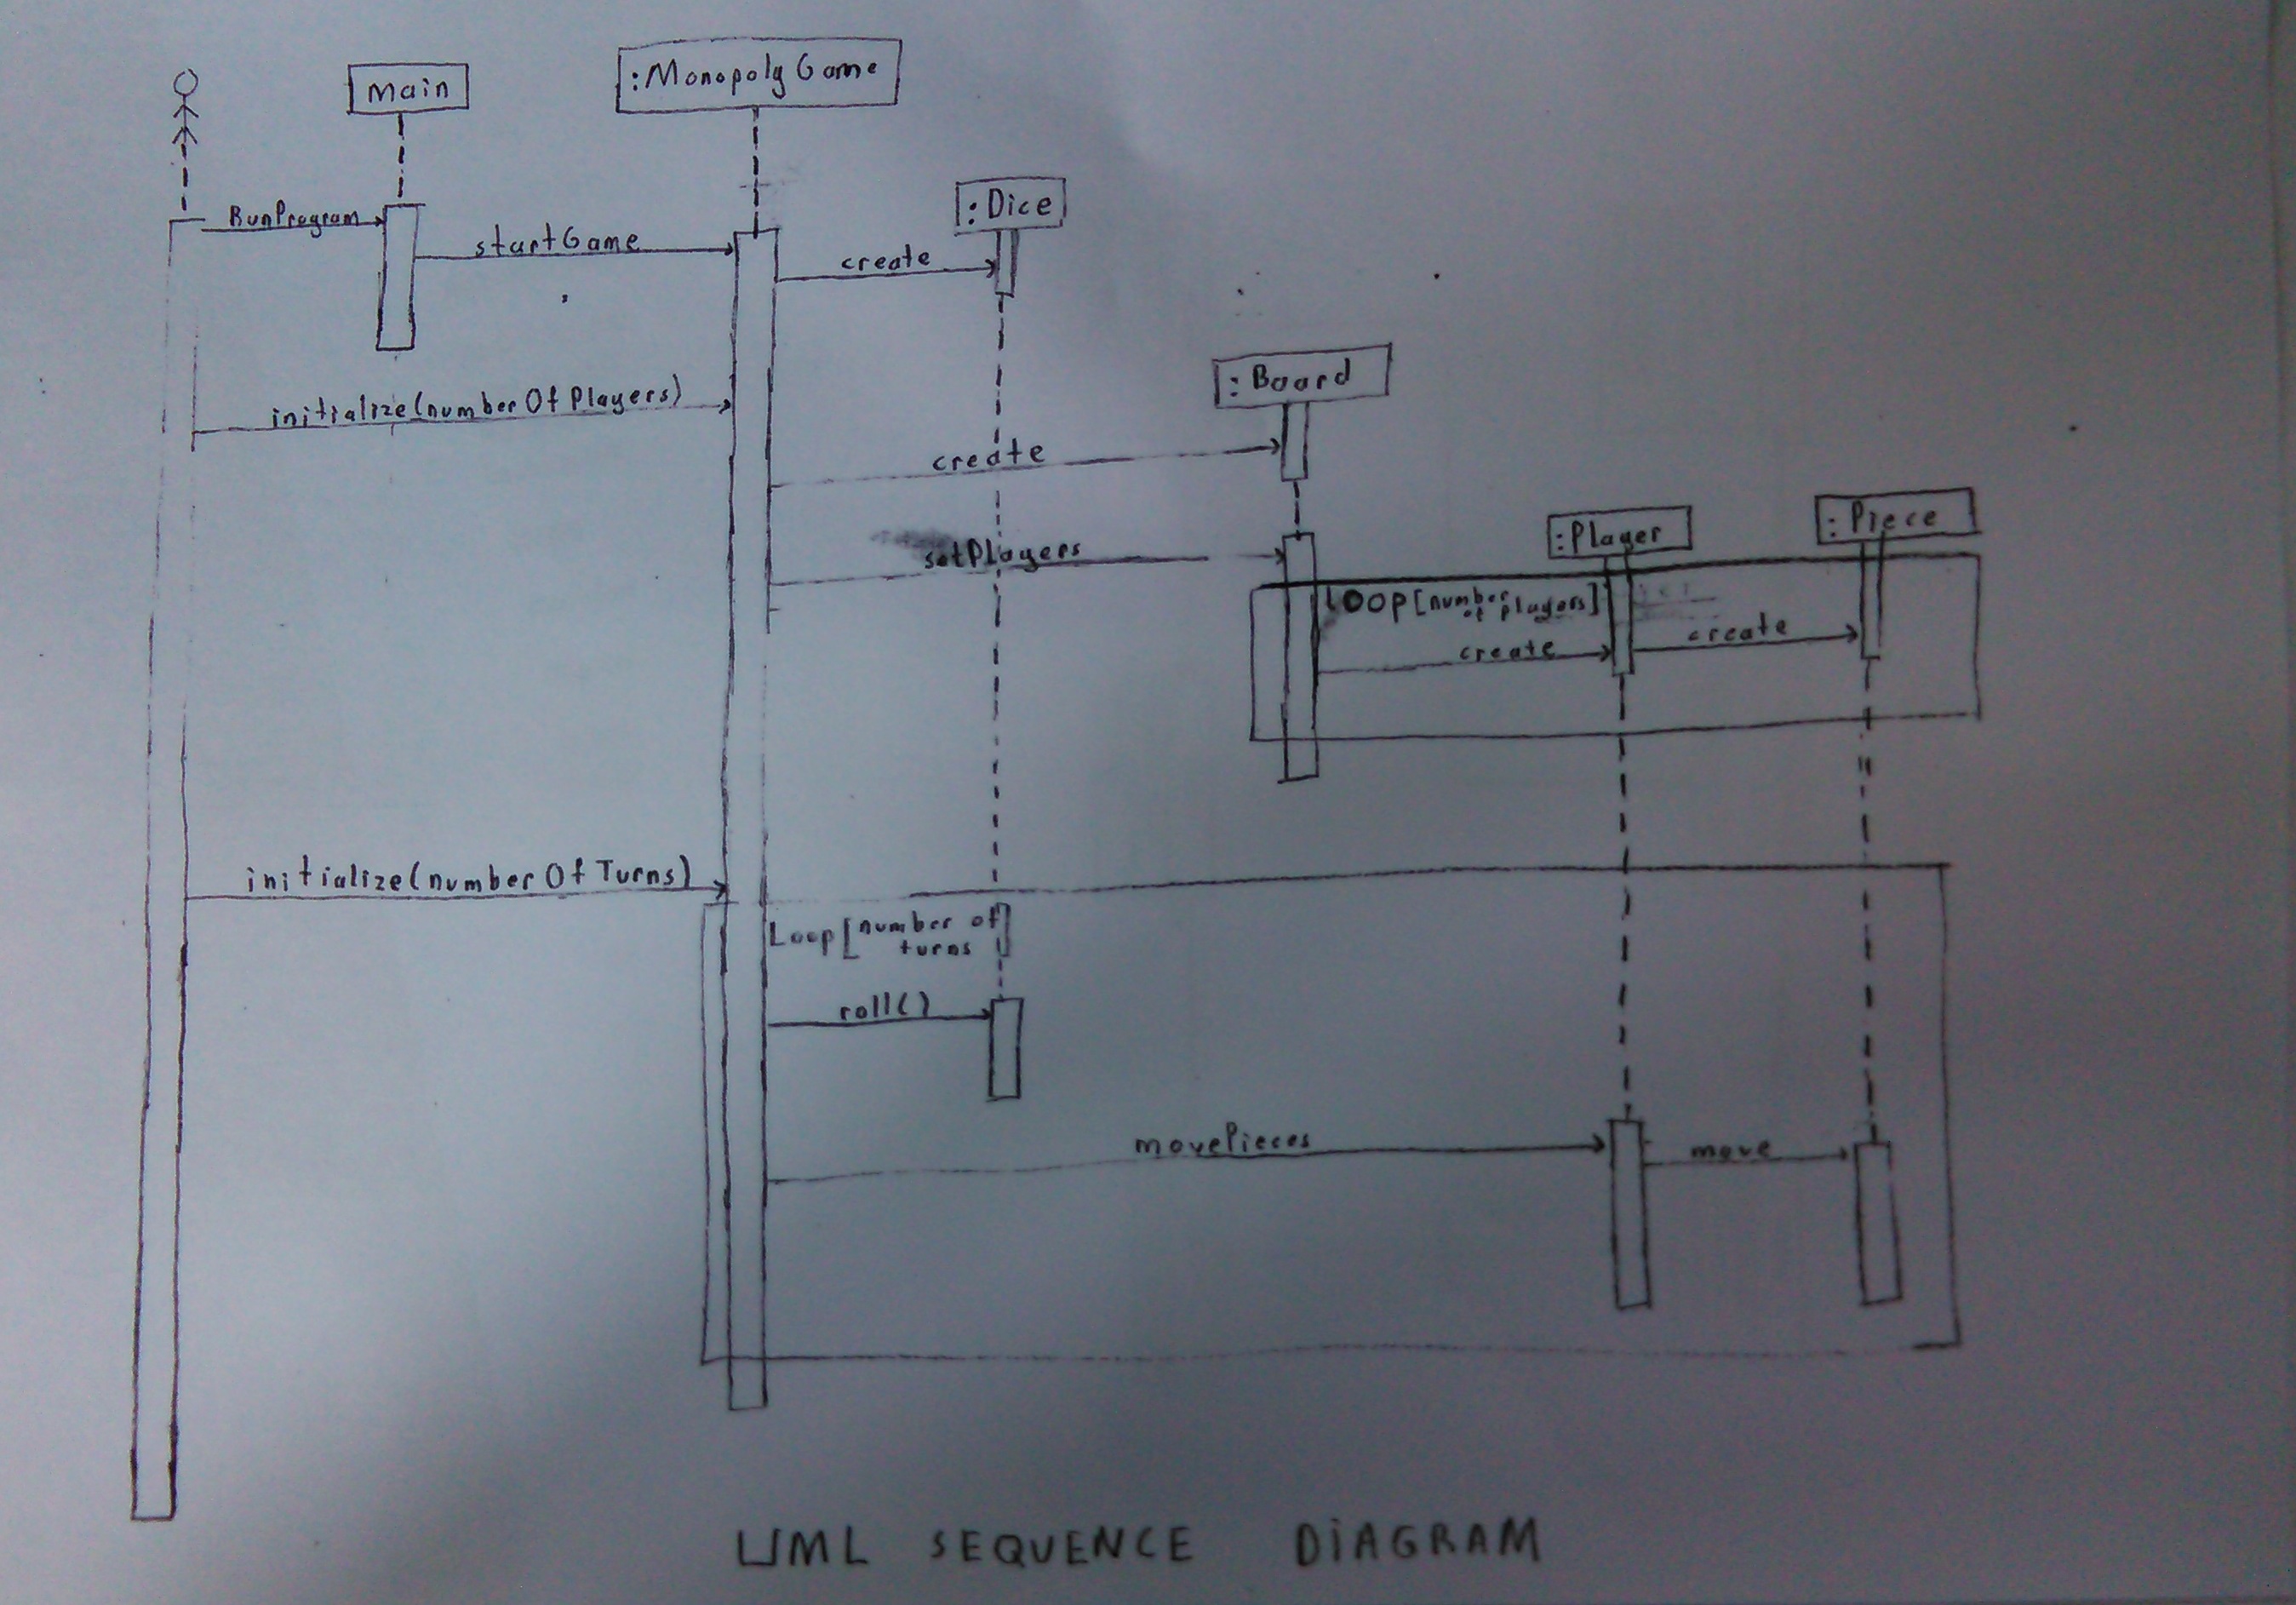 main
:Monopoly Game
:Dice
RunProgram
startGame
create
:Board
initialize(number Of Players)
create
:Player
:Piece
setPlayers
LOOP[number
of players]
create
create
initialize(number Of Turns)
Loop[number of
turns]
roll()
movePieces
move
UML SEQUENCE DIAGRAM